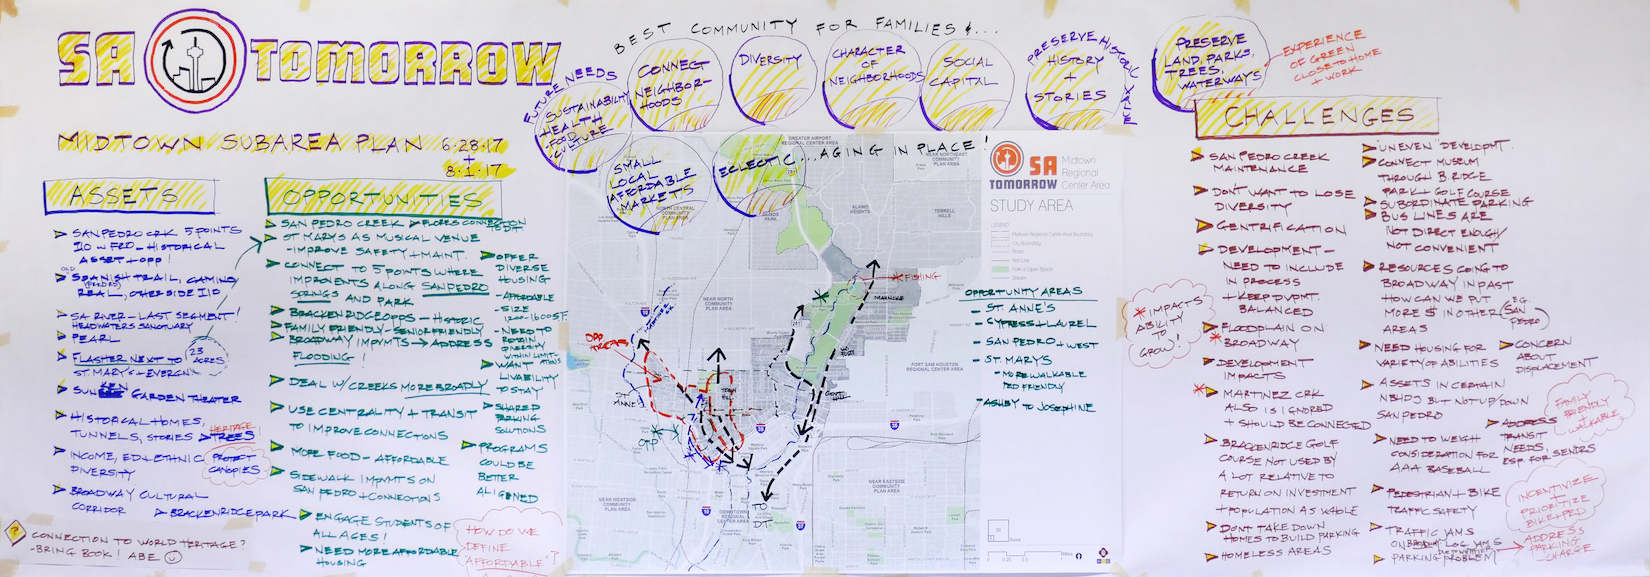 SA TOMORROW
MIDTOWN SUBAREA PLAN 6·28·17
+
8·1·17
ASSETS
SAN PEDRO CRK 5 POINTS
I10 W FRD – HISTORICAL
ASSET + OPP!
OLD
SPANISH TRAIL, CAMINO
REAL, OTHER SIDE I10
SA RIVER – LAST SEGMENT!
HEADWATERS SANCTUARY
PEARL
FLASHER NEXT TO
ST. MARY'S + EVERGN
23
ACRES
SUNKEN GARDEN THEATER
HISTORICAL HOMES,
TUNNELS, STORIES
HERITAGE
TREES
PROTECT
CANOPIES
INCOME, ED + ETHNIC
DIVERSITY
BROADWAY CULTURAL
CORRIDOR
BRACKENRIDGE PARK
?
CONNECTION TO WORLD HERITAGE?
– BRING BOOK! ABE
OPPORTUNITIES
SAN PEDRO CREEK
FLORES CONNECTION
TO DT
ST MARYS AS MUSICAL VENUE
– IMPROVE SAFETY + MAINT.
CONNECT TO 5 POINTS WHERE
IMPROMENTS ALONG SAN PEDRO
SPRINGS AND PARK
BRACKENRIDGE OPPS – HISTORIC
FAMILY FRIENDLY – SENIOR FRIENDLY
BROADWAY IMPVMTS → ADDRESS
FLOODING!
DEAL W/ CREEKS MORE BROADLY
USE CENTRALITY + TRANSIT
TO IMPROVE CONNECTIONS
MORE FOOD – AFFORDABLE
SIDEWALK IMPVMTS ON
SAN PEDRO + CONNECTIONS
ENGAGE STUDENTS OF
ALL AGES!
NEED MORE AFFORDABLE
HOUSING
OFFER
DIVERSE
HOUSING
– AFFORDABLE
– SIZE
1200–1600 S.F.
– NEED TO
RETAIN
DIVERSITY
WITHIN LIMIT-
ATIONS
WANT
LIVABILITY
TO STAY
SHARED
PARKING
SOLUTIONS
PROGRAMS
COULD BE
BETTER
ALIGNED
HOW DO WE
DEFINE
"AFFORDABLE"?
BEST COMMUNITY FOR FAMILIES &...
FUTURE NEEDS
SUSTAINABILITY
HEALTH
– FOOD
– CULTURE
CONNECT
NEIGHBOR-
HOODS
DIVERSITY
CHARACTER
OF
NEIGHBORHOODS
SOCIAL
CAPITAL
PRESERVE HISTORIC
HISTORY
+
STORIES
PRESERVE
LAND, PARKS,
TREES,
WATERWAYS
EXPERIENCE
OF GREEN
CLOSE TO HOME
+ WORK
SMALL
LOCAL
AFFORDABLE
MARKETS
ECLECTIC...AGING IN PLACE!
SA
TOMORROW
Midtown
Regional
Center Area
STUDY AREA
LEGEND
Midtown Regional Center Area Boundary
City Boundary
Road
Park or Open Space
Stream
GREATER AIRPORT
REGIONAL CENTER AREA
NEAR NORTHEAST
COMMUNITY
PLAN AREA
NORTH CENTRAL
COMMUNITY
PLAN AREA
OLMOS
PARK
ALAMO
HEIGHTS
TERRELL
HILLS
NEAR NORTH
COMMUNITY
PLAN AREA
FORT SAM HOUSTON
REGIONAL CENTER AREA
NEAR WESTSIDE
COMMUNITY
PLAN AREA
NEAR EASTSIDE
COMMUNITY
PLAN AREA
DOWNTOWN
REGIONAL
CENTER AREA
281
FISHING
MAHNCKE
OPP
AREAS
ST
ANNE
TO
DT
Miles
OPPORTUNITY AREAS
– ST. ANNE'S
– CYPRESS + LAUREL
– SAN PEDRO + WEST
– ST. MARY'S
– MORE WALKABLE
PED FRIENDLY
– ASHBY TO JOSEPHINE
CHALLENGES
SAN PEDRO CREEK
MAINTENANCE
DON'T WANT TO LOSE
DIVERSITY
GENTRIFICATION
DEVELOPMENT –
NEED TO INCLUDE
IN PROCESS
+ KEEP DVPMT.
BALANCED
* IMPACTS
ABILITY
TO
GROW!
FLOODPLAIN ON
BROADWAY
DEVELOPMENT
IMPACTS
MARTINEZ CRK
ALSO IS IGNORED
+ SHOULD BE CONNECTED
BRACKENRIDGE GOLF
COURSE NOT USED BY
A LOT RELATIVE TO
RETURN ON INVESTMENT
+ POPULATION AS WHOLE
DON'T TAKE DOWN
HOMES TO BUILD PARKING
HOMELESS AREAS
UNEVEN "DEVELOPMT.
CONNECT MUSEUM
THROUGH B.RIDGE
PARK + GOLF COURSE
SUBORDINATE PARKING
BUS LINES ARE
NOT DIRECT ENOUGH/
NOT CONVENIENT
RESOURCES GOING TO
BROADWAY IN PAST
HOW CAN WE PUT
MORE $ IN OTHER
AREAS
E.G.
SAN
PEDRO
NEED HOUSING FOR
VARIETY OF ABILITIES
CONCERN
ABOUT
DISPLACEMENT
ASSETS IN CERTAIN
NBHDS BUT NOT UP/DOWN
SAN PEDRO
NEED TO WEIGH
CONSIDERATION FOR
AAA BASEBALL
ADDRESS
TRANSIT
NEEDS,
ESP FOR SENIORS
FAMILY
FRIENDLY
+
WALKABLE
PEDESTRIAN + BIKE
TRAFFIC SAFETY
TRAFFIC JAMS
PARKING PROBLEM
INCENTIVIZE
+
PRIORITIZE
BIKE + PED
ADDRESS
PARKING
CHARGE